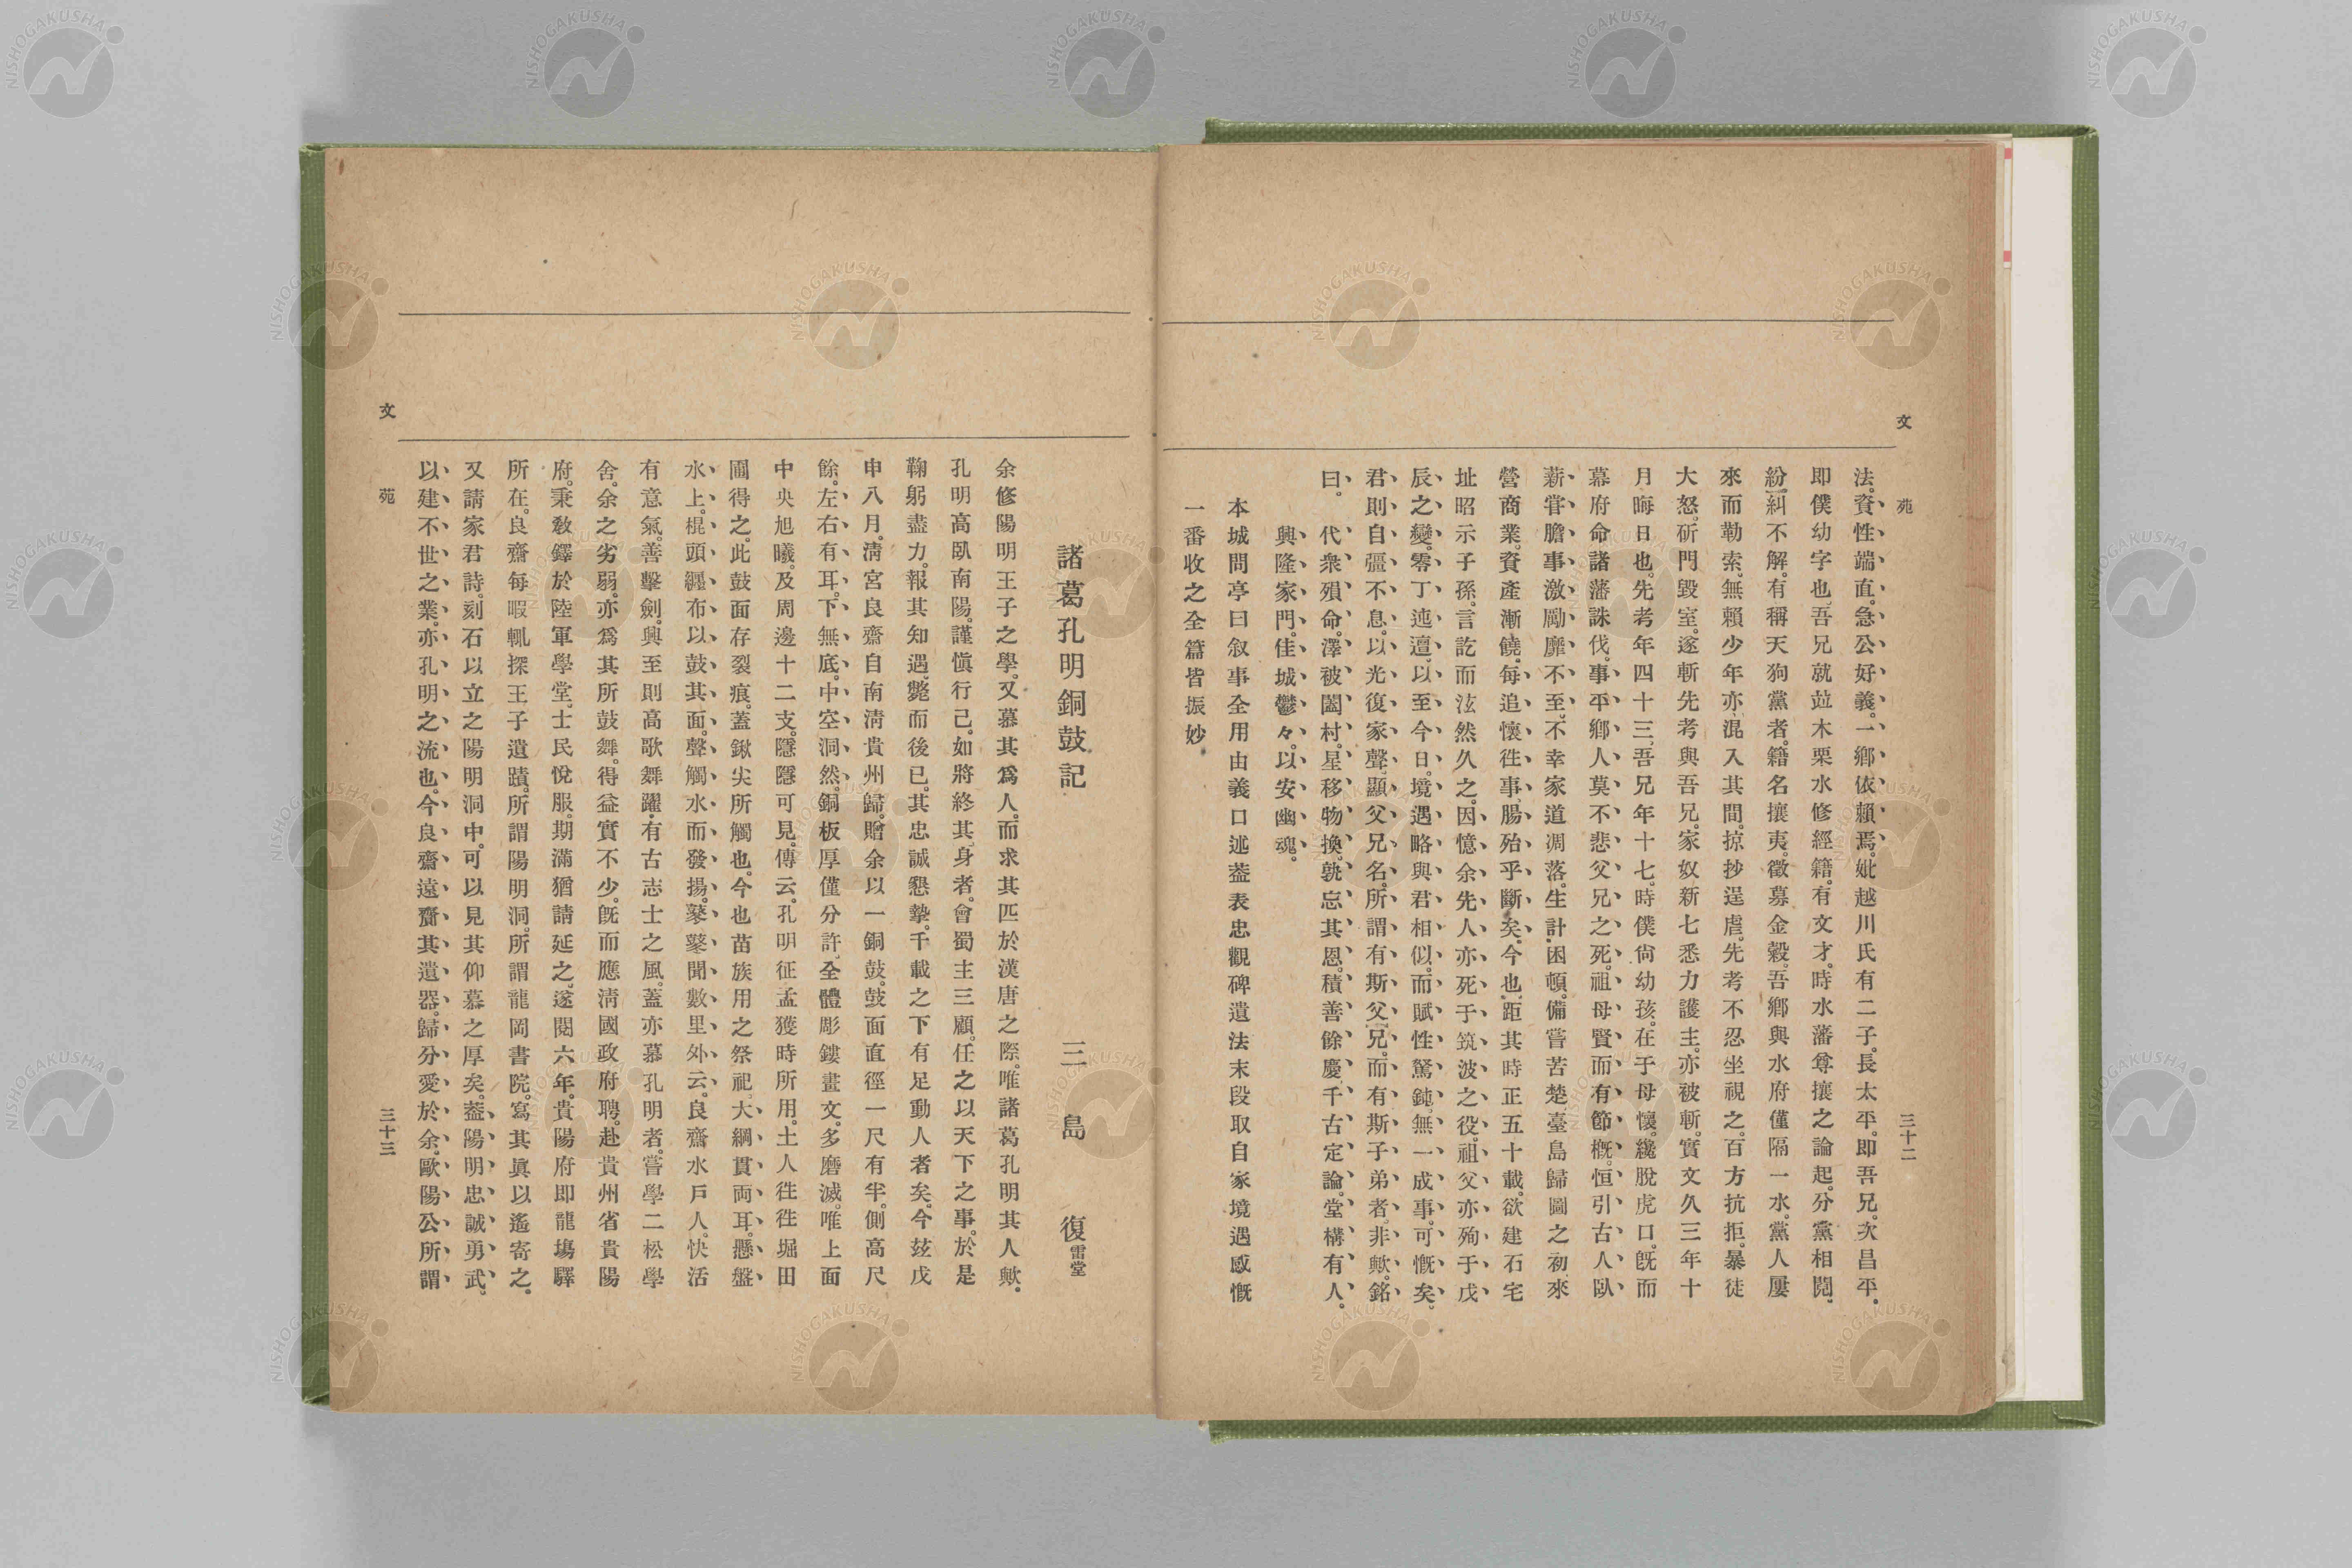 文 苑 三十二
法。資性端直。急公好義。一鄉依賴焉。妣越川氏有二子。長太平。即吾兄。次昌平。
即僕幼字也。吾兄就竝木栗水修經籍。有文才。時水藩尊攘之論起。分黨相鬩。
紛糾不解。有稱天狗黨者。籍名攘夷。徵募金穀。吾鄉與水府僅隔一水。黨人屢
來而勒索。無賴少年亦混入其間。掠抄逞虐。先考不忍坐視之。百方抗拒。暴徒
大怒。斫門毀室。遂斬先考與吾兄。家奴新七悉力護主。亦被斬。實文久三年十
月晦日也。先考年四十三。吾兄年十七。時僕尙幼孩。在于母懷。纔脫虎口。旣而
幕府命諸藩誅伐。事平鄉人莫不悲父兄之死。祖母賢而有節槪。恒引古人臥
薪嘗膽事激勵靡不至。不幸家道凋落。生計困頓。備嘗苦楚。臺島歸圖之初來
營商業。資產漸饒。每追懷徃事。腸殆乎斷矣。今也距其時正五十載。欲建石宅
址昭示子孫。言訖而泫然久之。因憶余先人亦死于筑波之役。祖父亦殉于戊
辰之變。零丁迍邅。以至今日。境遇略與君相似。而賦性駑鈍。無一成事。可慨矣。
君則自彊不息。以光復家聲。顯父兄名。所謂有斯父兄。而有斯子弟者。非歟。銘
曰。
代衆殞命。澤被闔村。星移物換。孰忘其恩。積善餘慶。千古定論。堂構有人。
興隆家門。佳城鬱々。以安幽魂。
本城問亭曰叙事全用由義口述葢表忠觀碑遺法末段取自家境遇感慨
一番收之全篇皆振妙
諸葛孔明銅鼓記 三島 復 雷堂
余修陽明王子之學。又慕其爲人。而求其匹於漢唐之際。唯諸葛孔明其人歟。
孔明高臥南陽。謹愼行己。如將終其身者。會蜀主三顧。任之以天下之事。於是
鞠躬盡力。報其知遇。斃而後已。其忠誠懇摯。千載之下有足動人者矣。今玆戊
申八月。淸宮良齋自南淸貴州歸。贈余以一銅鼓。鼓面直徑一尺有半。側高尺
餘。左右有耳。下無底。中空洞然。銅板厚僅分許。全體彫鏤畫文。多磨滅。唯上面
中央旭曦。及周邊十二支。隱隱可見。傳云。孔明征孟獲時所用。土人徃徃堀田
圃得之。此鼓面存裂痕。蓋鍬尖所觸也。今也苗族用之祭祀。大綱貫両耳。懸盤
水上。棍頭纒布以鼓其面。聲觸水而發揚。鼕鼕聞數里外云。良齋水戶人。快活
有意氣。善擊劍。興至則高歌舞躍。有古志士之風。蓋亦慕孔明者。嘗學二松學
舍。余之劣弱。亦爲其所鼓舞。得益實不少。旣而應淸國政府聘。赴貴州省貴陽
府。秉敎鐸於陸軍學堂。士民悅服。期滿猶請延之。遂閱六年。貴陽府即龍塲驛
所在。良齋每暇輒探王子遺蹟。所謂陽明洞。所謂龍岡書院。寫其眞以遙寄之。
又請家君詩。刻石以立之陽明洞中。可以見其仰慕之厚矣。葢陽明忠誠勇武。
以建不世之業。亦孔明之流也。今良齋遠齎其遺器。歸分愛於余。歐陽公所謂
文 苑 三十三
NISHOGAKUSHA